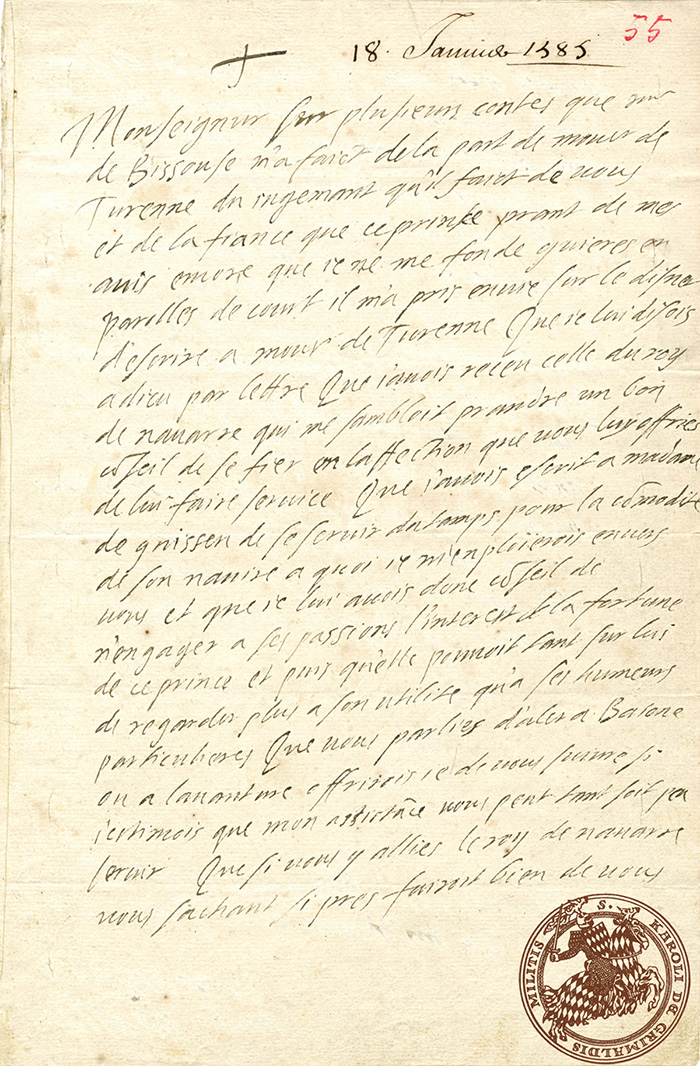 55
18. Januier 1585.
Monseignur sur plusieurs contes que mr
de Bissouse m'a faict de la part de monsr de
Turenne du iugemant qu'il faict de vous
et de la fiance que ce prinse prant de mes
auis encore que ie ne me fonde guieres en
parolles de court il m'a pris enuie sur le disner
d'escrire a monsr de Turenne Que ie lui disois
adieu par lettre Que i'auois receu celle du roy
de nauarre qui me sambloit prandre un bon
coseil de se fier en l'affection que vous luy offries
de lui faire seruice Que i'auois escrit a madame
de guissen de se seruir du tamps pour la comodite
de son nauire a quoi ie m'emploierois enuers
vous et que ie lui auois done coseil de
n'engager a ses passions l'interest & la fortune
de ce prince et puis qu'elle pouuoit tant sur lui
de regarder plus a son utilite qu'a ses humeurs
particulieres Que vous parlies d'aler a Baione
ou a l'auanture offrirois ie de vous suiure si
i'estimois que mon assistāce vous peut tant soit peu
seruir Que si vous y allies le roy de nauarre
vous sachant si pres fairoit bien de vous
S. KAROLI DE GRIMALDIS MILITIS